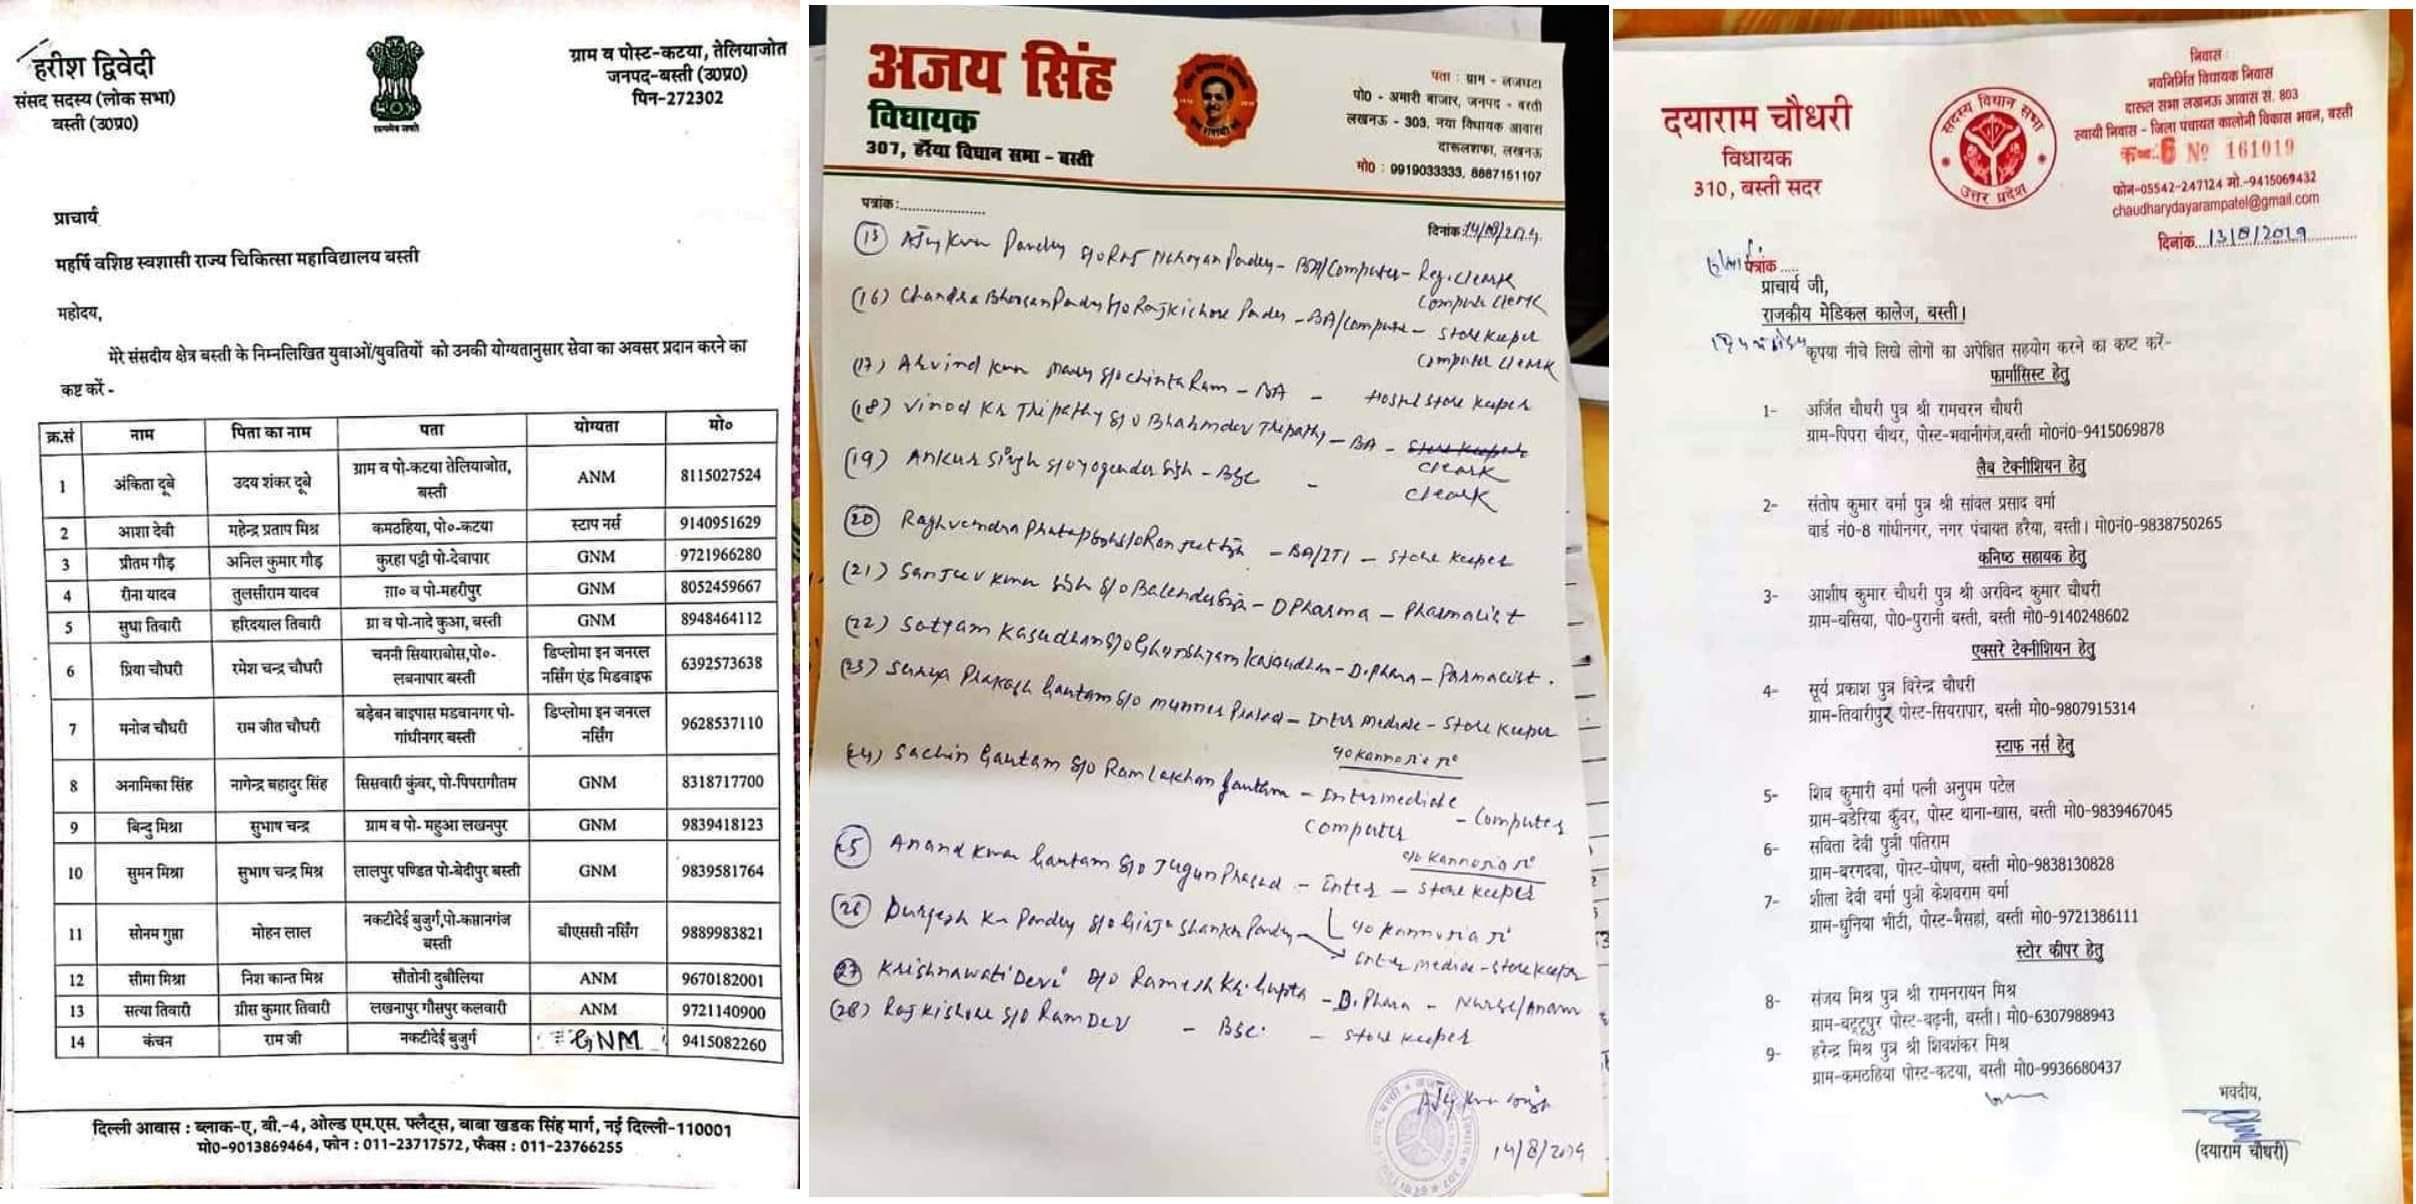 हरीश द्विवेदी
संसद सदस्य (लोक सभा)
बस्ती (उ0प्र0)
सत्यमेव जयते
ग्राम व पोस्ट-कटया, तेलियाजोत
जनपद-बस्ती (उ0प्र0)
पिन-272302
प्राचार्य
महर्षि वशिष्ठ स्वशासी राज्य चिकित्सा महाविद्यालय बस्ती
महोदय,
मेरे संसदीय क्षेत्र बस्ती के निम्नलिखित युवाओं/युवतियों को उनकी योग्यतानुसार सेवा का अवसर प्रदान करने का
कष्ट करें -
क्र.सं नाम पिता का नाम पता योग्यता मो०
1 अंकिता दूबे उदय शंकर दूबे ग्राम व पो-कटया तेलियाजोत, बस्ती ANM 8115027524
2 आशा देवी महेन्द्र प्रताप मिश्र कमठहिया, पो०-कटया स्टाप नर्स 9140951629
3 प्रीतम गौड़ अनिल कुमार गौड़ कुरहा पट्टी पो-देवापार GNM 9721966280
4 रीना यादव तुलसीराम यादव ग्रा० व पो-महरीपुर GNM 8052459667
5 सुधा तिवारी हरिदयाल तिवारी ग्रा व पो-नादे कुआ, बस्ती GNM 8948464112
6 प्रिया चौधरी रमेश चन्द्र चौधरी चननी सियाराबोस,पो०-लबनापार बस्ती डिप्लोमा इन जनरल नर्सिंग एंड मिडवाइफ 6392573638
7 मनोज चौधरी राम जीत चौधरी बड़ेबन बाइपास मडवानगर पो-गांधीनगर बस्ती डिप्लोमा इन जनरल नर्सिंग 9628537110
8 अनामिका सिंह नागेन्द्र बहादुर सिंह सिसवारी कुंवर, पो-पिपरागौतम GNM 8318717700
9 बिन्दु मिश्रा सुभाष चन्द्र ग्राम व पो- महुआ लखनपुर GNM 9839418123
10 सुमन मिश्रा सुभाष चन्द्र मिश्र लालपुर पण्डित पो-बेदीपुर बस्ती GNM 9839581764
11 सोनम गुप्ता मोहन लाल नकटीदेई बुजुर्ग,पो-कप्तानगंज बस्ती बीएससी नर्सिंग 9889983821
12 सीमा मिश्रा निश कान्त मिश्र सौतोनी दुबौलिया ANM 9670182001
13 सत्या तिवारी ग्रीस कुमार तिवारी लखनापुर गौसपुर कलवारी ANM 9721140900
14 कंचन राम जी नकटीदेई बुजुर्ग GNM 9415082260
दिल्ली आवास : ब्लाक-ए, बी.-4, ओल्ड एम.एस. फ्लैट्स, बाबा खडक सिंह मार्ग, नई दिल्ली-110001
मो0-9013869464, फोन : 011-23717572, फैक्स : 011-23766255
अजय सिंह
विधायक
307, हर्रैया विधान सभा - बस्ती
पता : ग्राम - लजघटा
पो0 - अमारी बाजार, जनपद - बस्ती
लखनऊ - 303, नया विधायक आवास
दारूलशफा, लखनऊ
मो0 : 9919033333, 8887151107
पत्रांक:
दिनांक 14/08/2019
(15) Ajay Kumar Pandey S/o Raj Narayan Pandey - BA/Computer - Reg. Cleark
Computer Cleark
(16) Chandra Bhoosan Pandey S/o Rajkishore Pandey - BA/Compute - Store Keeper
Computer Cleark
(17) Arvind Kumar Maurya S/o Chinta Ram - BA - Hostel Store Keeper
(18) Vinod Kr Tripathy S/o Brahmdev Tripathy - BA - Store Keeper
Cleark
(19) Ankur Singh S/o Yogender Singh - BSc - Cleark
(20) Raghvendra Pratap Singh S/o Ranjeet Singh - BA/ITI - Store Keeper
(21) Sanjeev Kumar Singh S/o Balender Singh - DPharma - Pharmacist
(22) Satyam Kasaudhan S/o Ghanshyam Kasaudhan - D.Phara - Parmacist.
(23) Surya Prakash Gautam S/o Munner Prasad - Inter Mediate - Store Keeper
(24) Sachin Gautam S/o Ram Lakhan Gautam - Intermediate - Computer
Computer
(25) Anand Kumar Gautam S/o Jugun Prasad - Inter - Store Keeper
(26) Durgesh Kr Pandey S/o Girja Shankar Pandey
Inter Mediate - Store Keeper
(27) Krishnawati Devi D/o Ramesh Kr. Gupta - D.Phara - Nurse/Anam
(28) Raj Kishore S/o Ram Dev - BSc. - Store Keeper
14/8/2019
दयाराम चौधरी
विधायक
310, बस्ती सदर
सदस्य विधान सभा
उत्तर प्रदेश
निवास :
नवनिर्मित विधायक निवास
दारूल सभा लखनऊ आवास सं. 803
स्थायी निवास - जिला पंचायत कालोनी विकास भवन, बस्ती
6 Nº 161019
फोन-05542-247124 मो.-9415069432
chaudharydayarampatel@gmail.com
पत्रांक
दिनांक 13/8/2019
प्राचार्य जी,
राजकीय मेडिकल कालेज, बस्ती।
कृपया नीचे लिखे लोगों का अपेक्षित सहयोग करने का कष्ट करें-
फार्मासिस्ट हेतु
1- अर्जित चौधरी पुत्र श्री रामचरन चौधरी
ग्राम-पिपरा चीथर, पोस्ट-भवानीगंज,बस्ती मो0नं0-9415069878
लैब टेक्नीशियन हेतु
2- संतोष कुमार वर्मा पुत्र श्री सांवल प्रसाद वर्मा
वार्ड नं0-8 गांधीनगर, नगर पंचायत हरैया, बस्ती। मो0नं0-9838750265
कनिष्ठ सहायक हेतु
3- आशीष कुमार चौधरी पुत्र श्री अरविन्द कुमार चौधरी
ग्राम-बसिया, पो0-पुरानी बस्ती, बस्ती मो0-9140248602
एक्सरे टेक्नीशियन हेतु
4- सूर्य प्रकाश पुत्र विरेन्द्र चौधरी
ग्राम-तिवारीपुर पोस्ट-सियरापार, बस्ती मो0-9807915314
स्टाफ नर्स हेतु
5- शिव कुमारी वर्मा पत्नी अनुपम पटेल
ग्राम-बडेरिया कुँवर, पोस्ट थाना-खास, बस्ती मो0-9839467045
6- सविता देवी पुत्री पतिराम
ग्राम-बरगदवा, पोस्ट-घोषण, बस्ती मो0-9838130828
7- शीला देवी वर्मा पुत्री केशवराम वर्मा
ग्राम-धुनिया भीटी, पोस्ट-भैसहां, बस्ती मो0-9721386111
स्टोर कीपर हेतु
8- संजय मिश्र पुत्र श्री रामनरायन मिश्र
ग्राम-बट्टूपुर पोस्ट-बढ़नी, बस्ती। मो0-6307988943
9- हरेन्द्र मिश्र पुत्र श्री शिवशंकर मिश्र
ग्राम-कमठहिया पोस्ट-कटया, बस्ती मो0-9936680437
भवदीय,
(दयाराम चौधरी)